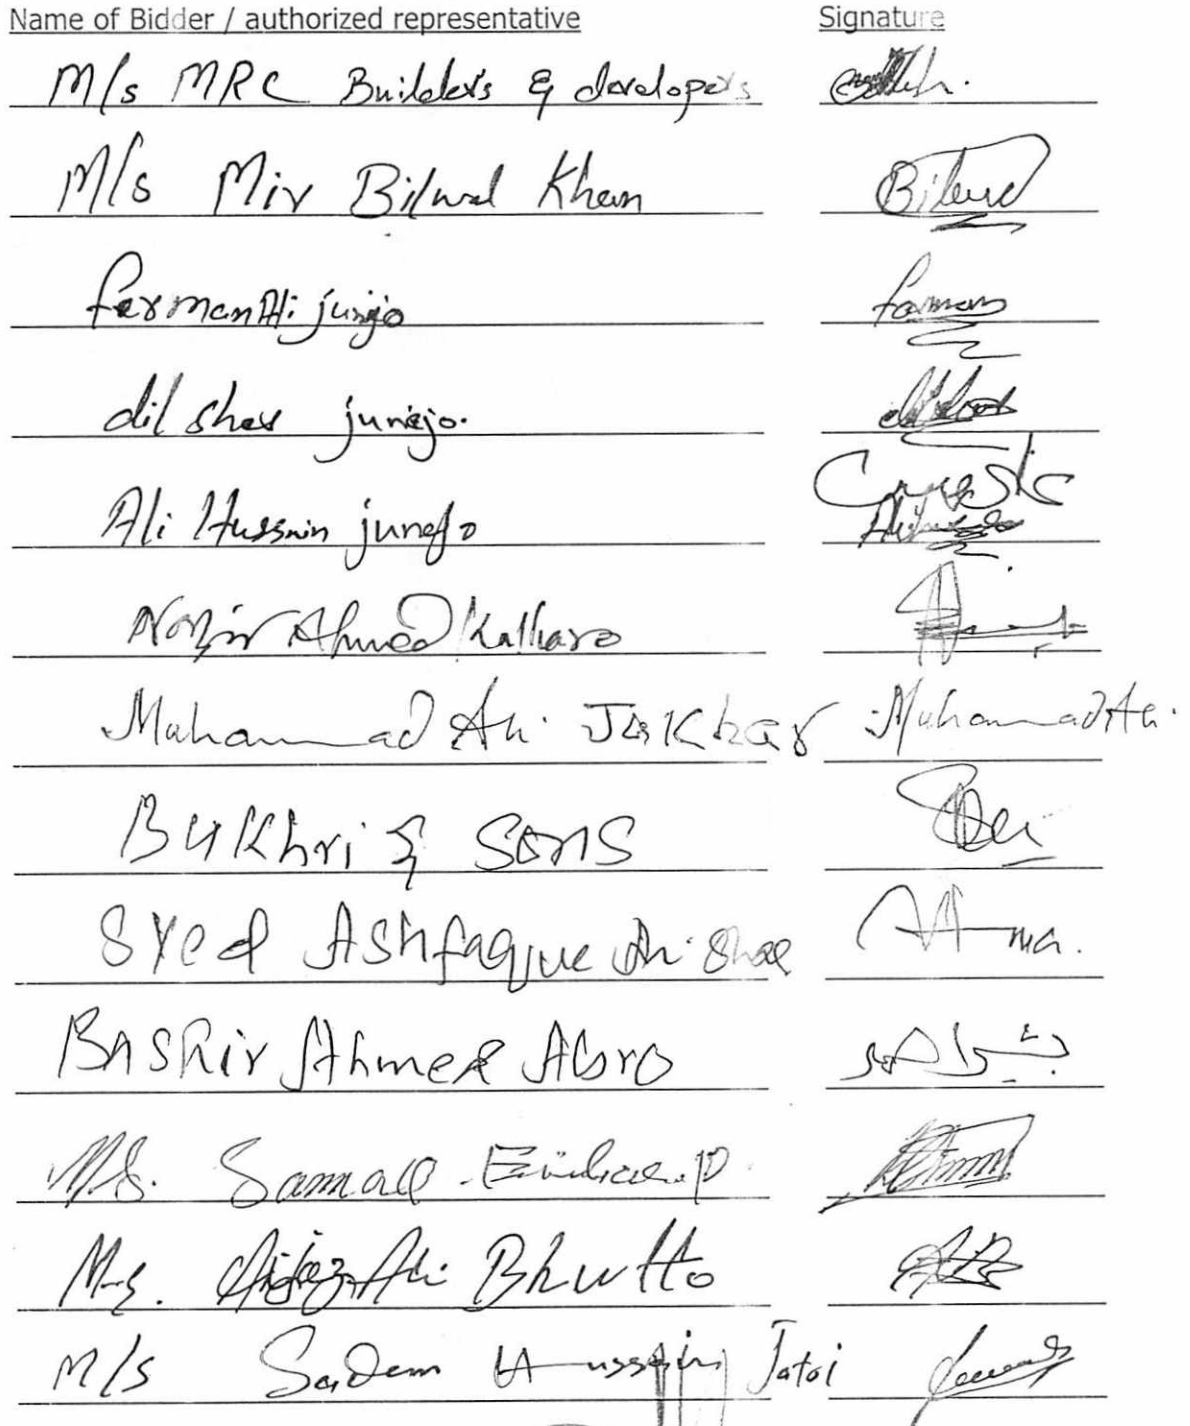 Name of Bidder / authorized representative Signature
M/s MRC Builders & developers
M/s Mir Bilwal Khan Bilwal
farman Ali junejo farman
dil sher junejo.
Ali Hussnin junejo
Nazir Ahmed Kalharo
Muhammad Ali Jakhar Muhammad Ali
Bukhri & Sons
Syed Ashfaque Ali Shah
Bashir Ahmed Abro بشیر احمد
M/s. Samall
M-s. Aijaz Ali Bhutto
M/s Sadam Hussain Jatoi